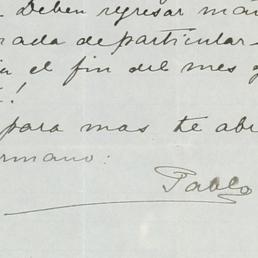 Deben regresar
rada de particular
el fin del mes
!
para mas te abr
ermano:
Pablo